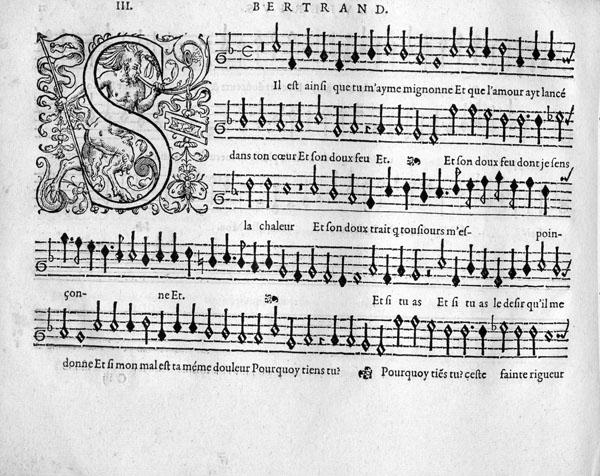 III. BERTRAND.
S
Il est ainsi que tu m'ayme mignonne Et que l'amour ayt lancé
dans ton cœur Et son doux feu Et. Et son doux feu dont je sens
la chaleur Et son doux trait q tousiours m'es- poin-
çon- ne Et. Et si tu as Et si tu as le desir qu'il me
donne Et si mon mal est ta méme douleur Pourquoy tiens tu? Pourquoy tiẽs tu? ceste sainte rigueur